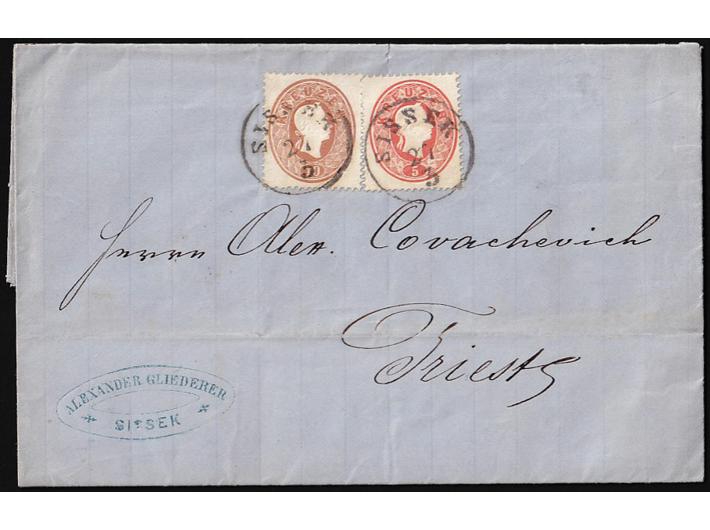 KREUZER
10
KREUZER
5
SISSEK
27
5
SISSEK
27
5
Herrn Alex. Covachevich
Triest
ALEXANDER GLIEDERER
SISSEK